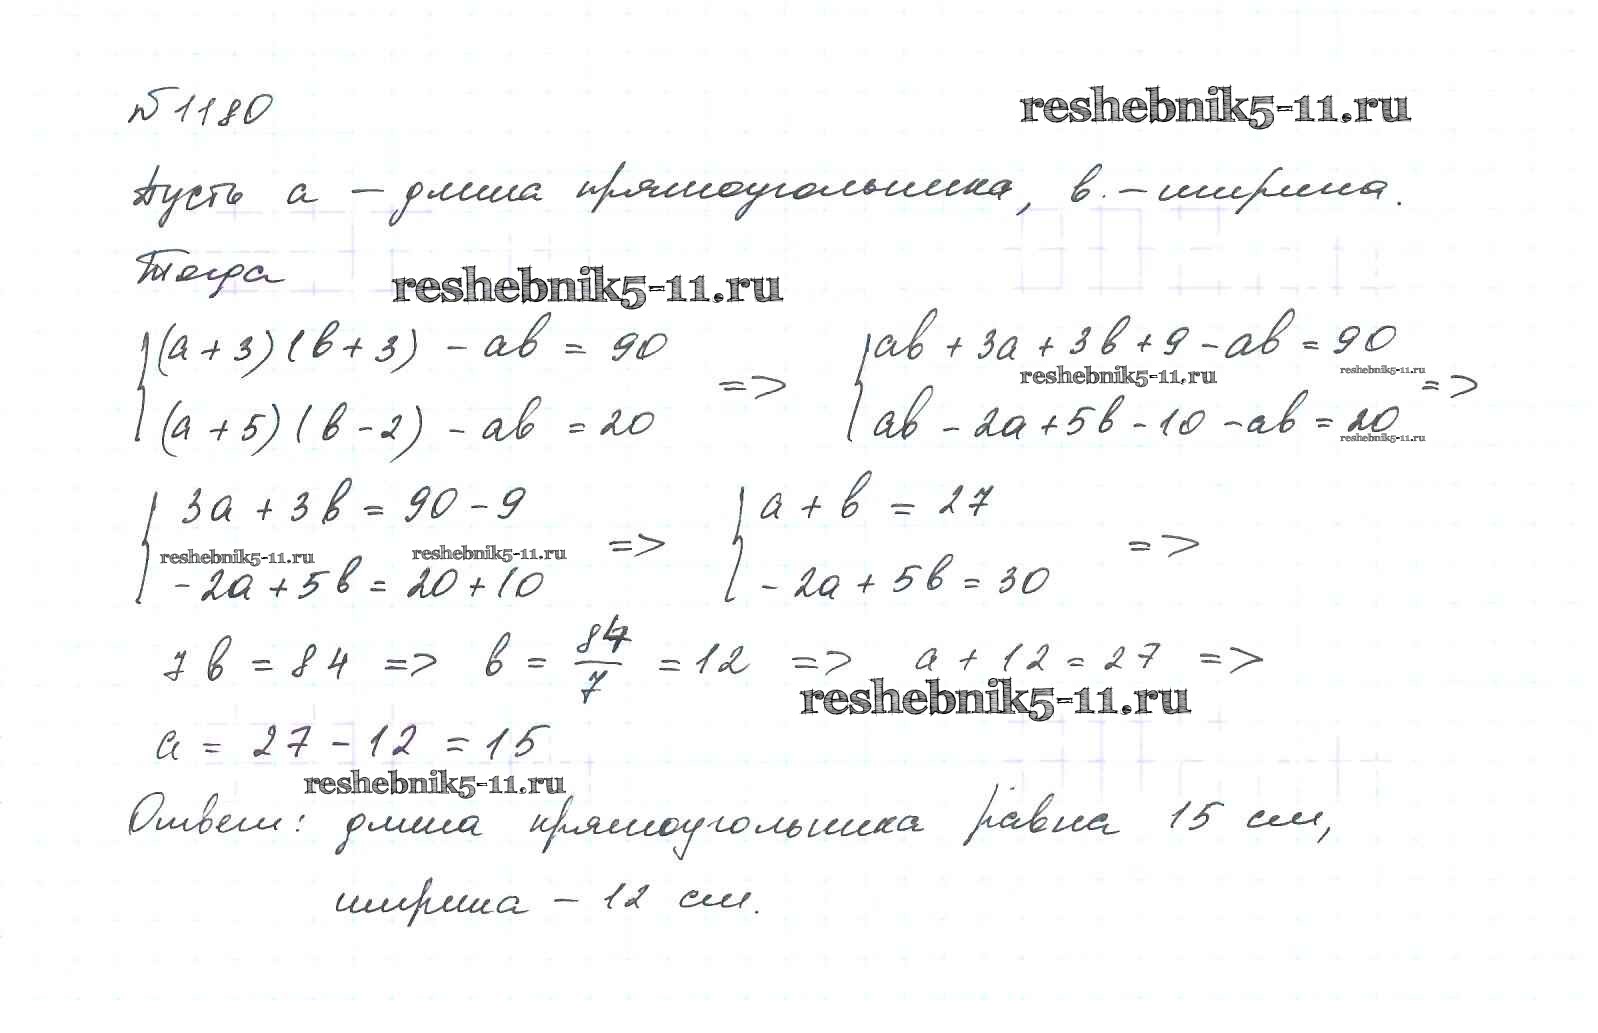 №1180 reshebnik5-11.ru
Пусть a – длина прямоугольника, в. – ширина.
Тогда reshebnik5-11.ru
{(a+3)(в+3) - aв = 90 => {aв + 3a + 3в + 9 - aв = 90
reshebnik5-11.ru reshebnik5-11.ru
{(a+5)(в-2) - aв = 20 {aв - 2a + 5в - 10 - aв = 20 =>
reshebnik5-11.ru
{3a + 3в = 90 - 9 => {a + в = 27 =>
reshebnik5-11.ru reshebnik5-11.ru
{-2a + 5в = 20 + 10 {-2a + 5в = 30
7в = 84 => в = 84/7 = 12 => a + 12 = 27 =>
reshebnik5-11.ru
a = 27 - 12 = 15
reshebnik5-11.ru
Ответ: длина прямоугольника равна 15 см,
ширина – 12 см.